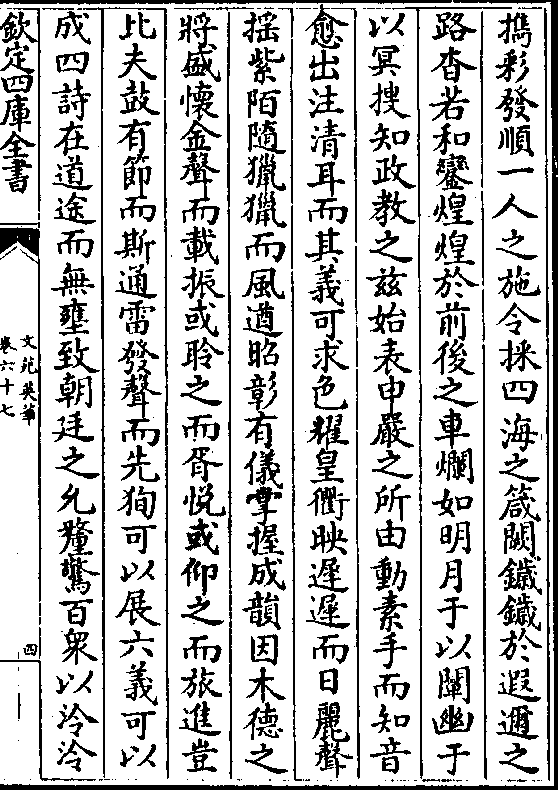 擕彩發順一人之施令採四海之箴闕鐬鐬於遐邇之
路杳若和鑾煌煌於前後之車爛如明月于以闡幽于
以冥搜知政教之兹始表申嚴之所由動素手而知音
愈出注清耳而其義可求色耀皇衢映遲遲而日麗聲
揺紫陌隨獵獵而風遒昭彰有儀掌握成韻因木德之
將盛懷金聲而載振或聆之而胥悦或仰之而旅進豈
比夫鼓有節而斯通雷發聲而先狥可以展六義可以
成四詩在道途而無壅致朝廷之允釐驚百衆以泠泠
欽定四庫全書
文苑英華
卷六十七
四